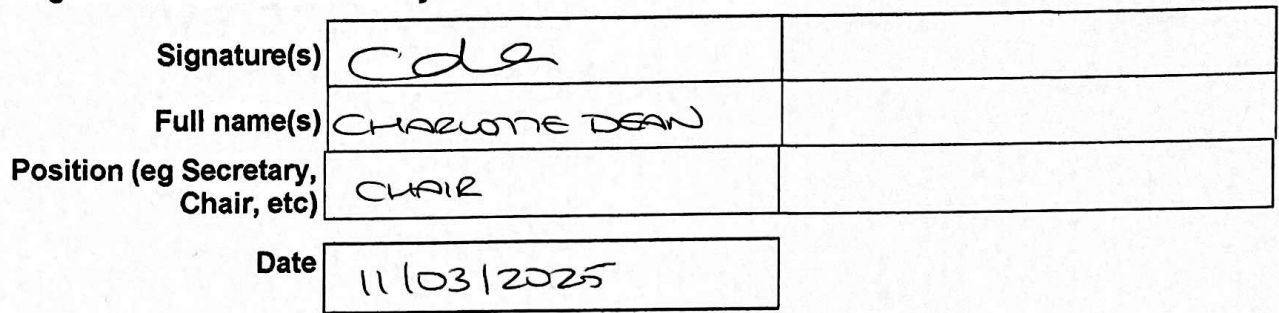 Signature(s)
Full name(s) CHARLOTTE DEAN
Position (eg Secretary,
Chair, etc) CHAIR
Date 11/03/2025